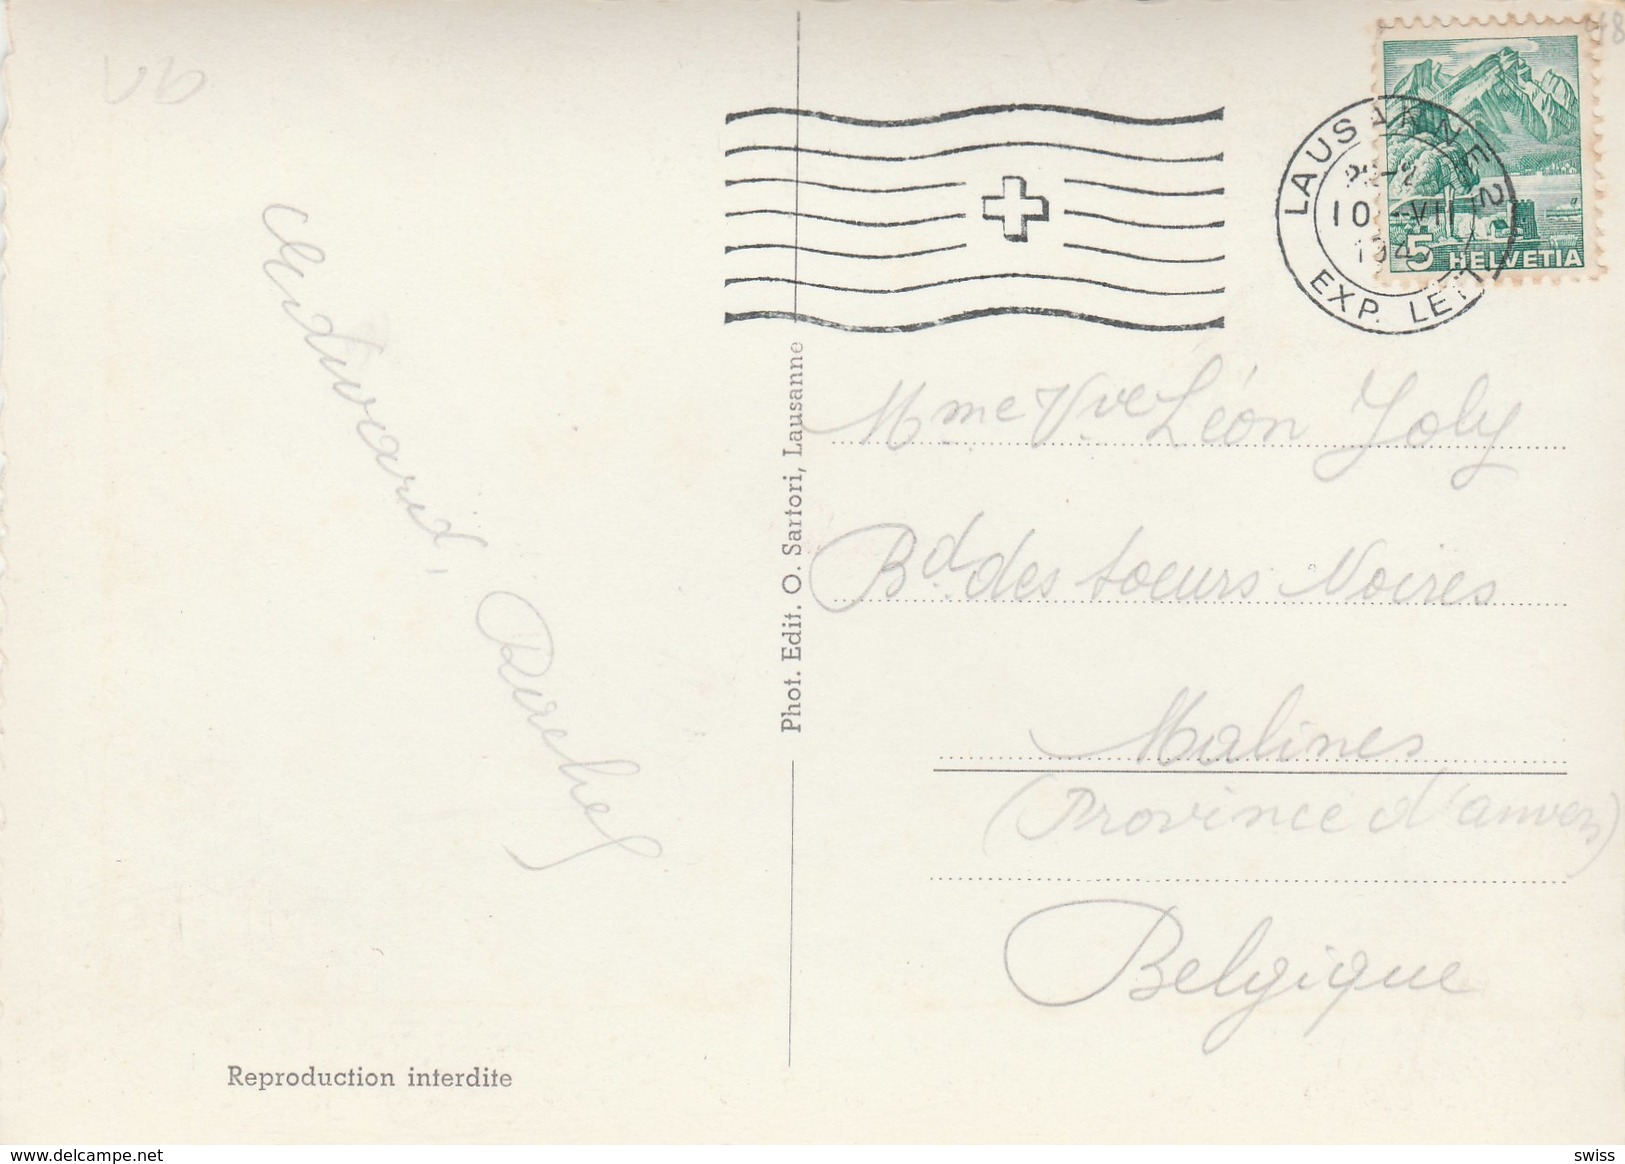 VB
48
LAUSANNE 2
10.-VII
EXP. LETT
5 HELVETIA
Mme Vve Léon Joly
Bd. des Soeurs Noires
Malines
(Province d'Anvers)
Belgique
Phot. Edit. O. Sartori, Lausanne
Reproduction interdite
delcampe.net
swiss